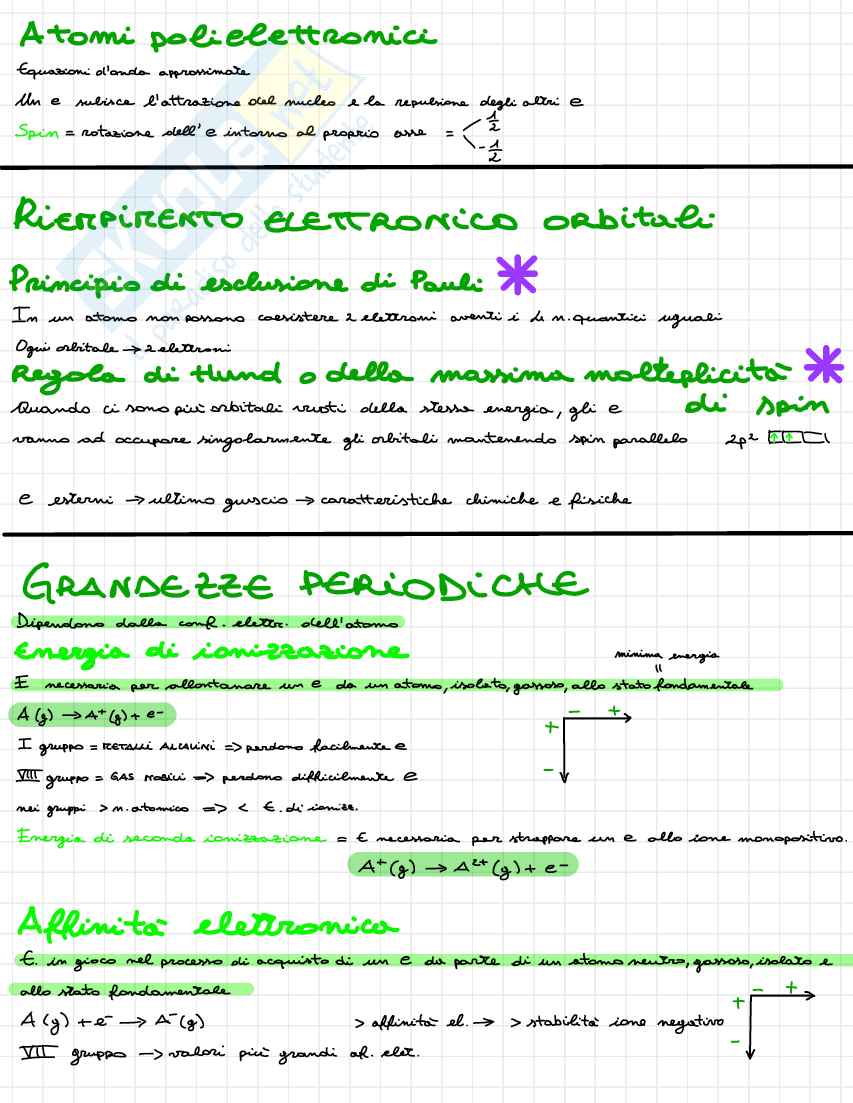 Atomi polielettronici
Equazioni d'onda approssimate
Un e subisce l'attrazione del nucleo e la repulsione degli altri e
Spin = rotazione dell'e intorno al proprio asse = 1/2
- 1/2
SKUOLA.net
paradiso dello studente
RIEMPIMENTO ELETTRONICO ORBITALI
Principio di esclusione di Pauli *
In un atomo non possono coesistere 2 elettroni aventi i 4 n. quantici uguali
Ogni orbitale → 2 elettroni
Regola di Hund o della massima molteplicità *
di spin
Quando ci sono più orbitali vuoti della stessa energia, gli e
vanno ad occupare singolarmente gli orbitali mantenendo spin parallelo 2p² ↑ ↑
e esterni → ultimo guscio → caratteristiche chimiche e fisiche
GRANDEZZE PERIODICHE
Dipendono dalla conf. elettr. dell'atomo
Energia di ionizzazione
minima energia
=
E necessaria per allontanare un e da un atomo, isolato, gassoso, allo stato fondamentale
A (g) → A⁺ (g) + e⁻
- +
+
-
I gruppo = METALLI ALCALINI => perdono facilmente e
VIII gruppo = GAS NOBILI => perdono difficilmente e
nei gruppi > n. atomico => < E. di ionizz.
Energia di seconda ionizzazione = E necessaria per strappare un e allo ione monopositivo.
A⁺ (g) → A²⁺ (g) + e⁻
Affinità elettronica
E. in gioco nel processo di acquisto di un e da parte di un atomo neutro, gassoso, isolato e
allo stato fondamentale
- +
+
-
A (g) + e⁻ → A⁻ (g) > affinità el. → > stabilità ione negativo
VII gruppo → valori più grandi af. elet.